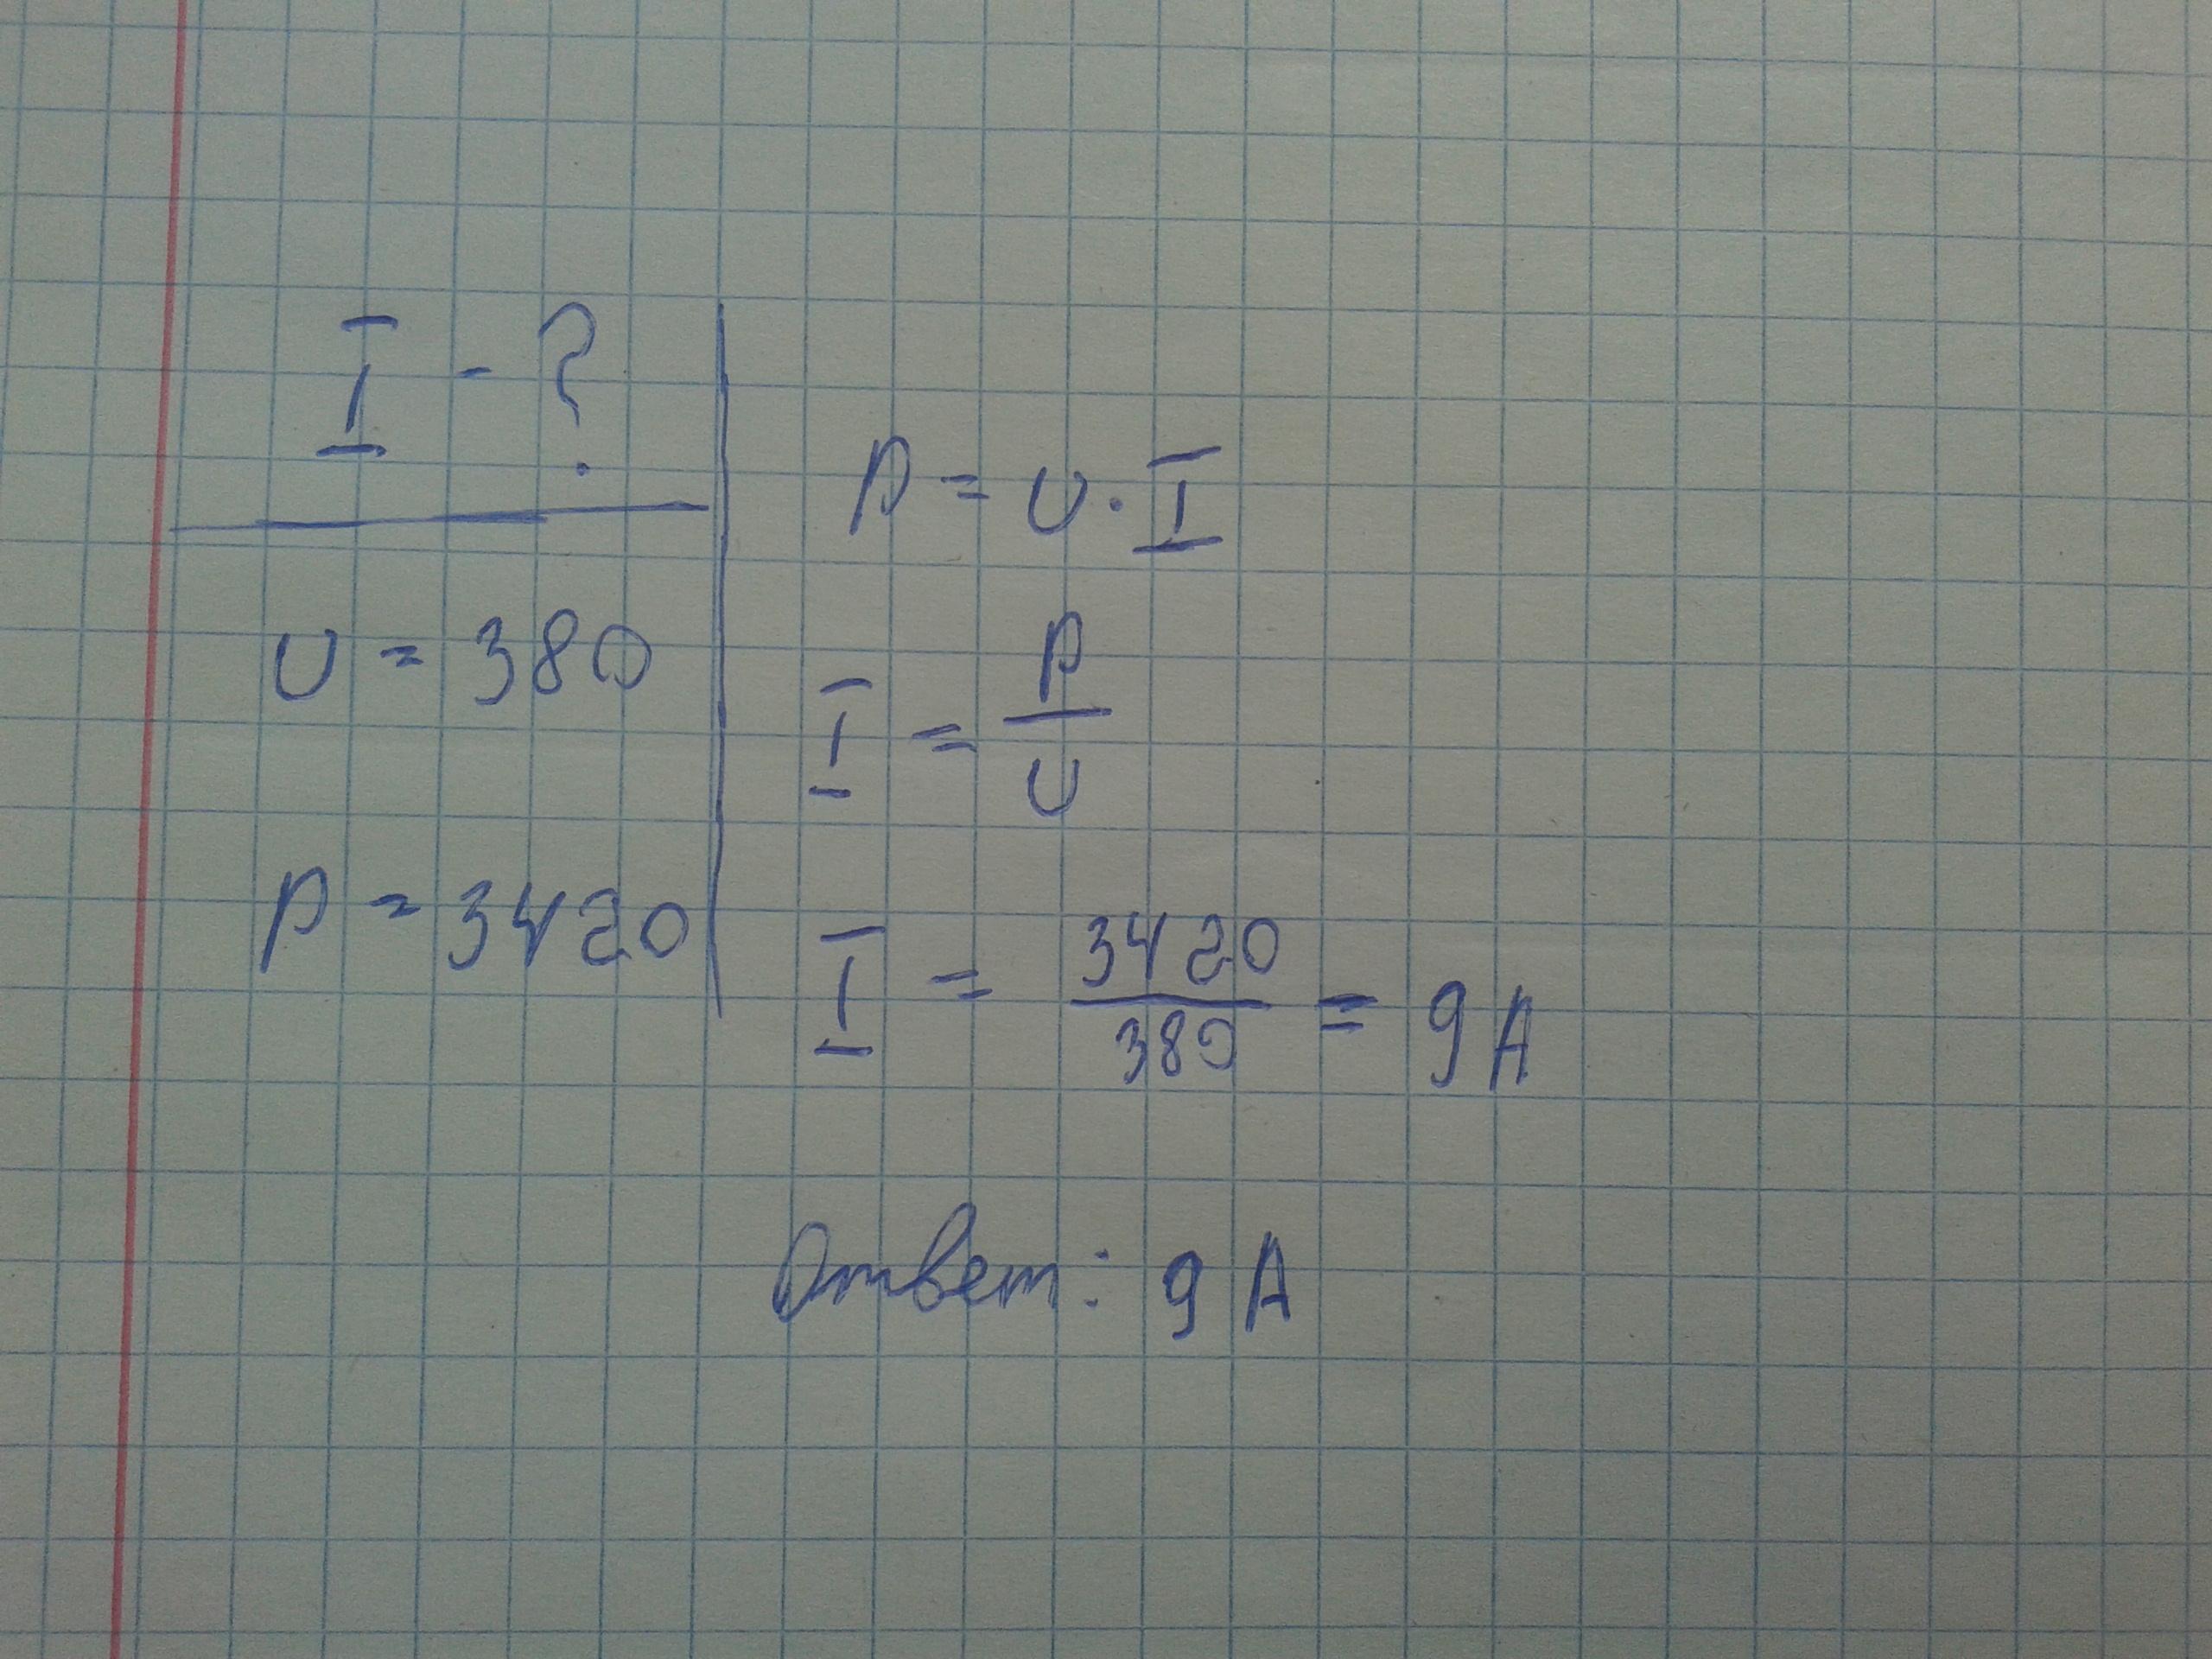 I - ?
U = 380
P = 3420
P = U · I
I = P/U
I = 3420/380 = 9 А
Ответ: 9 А